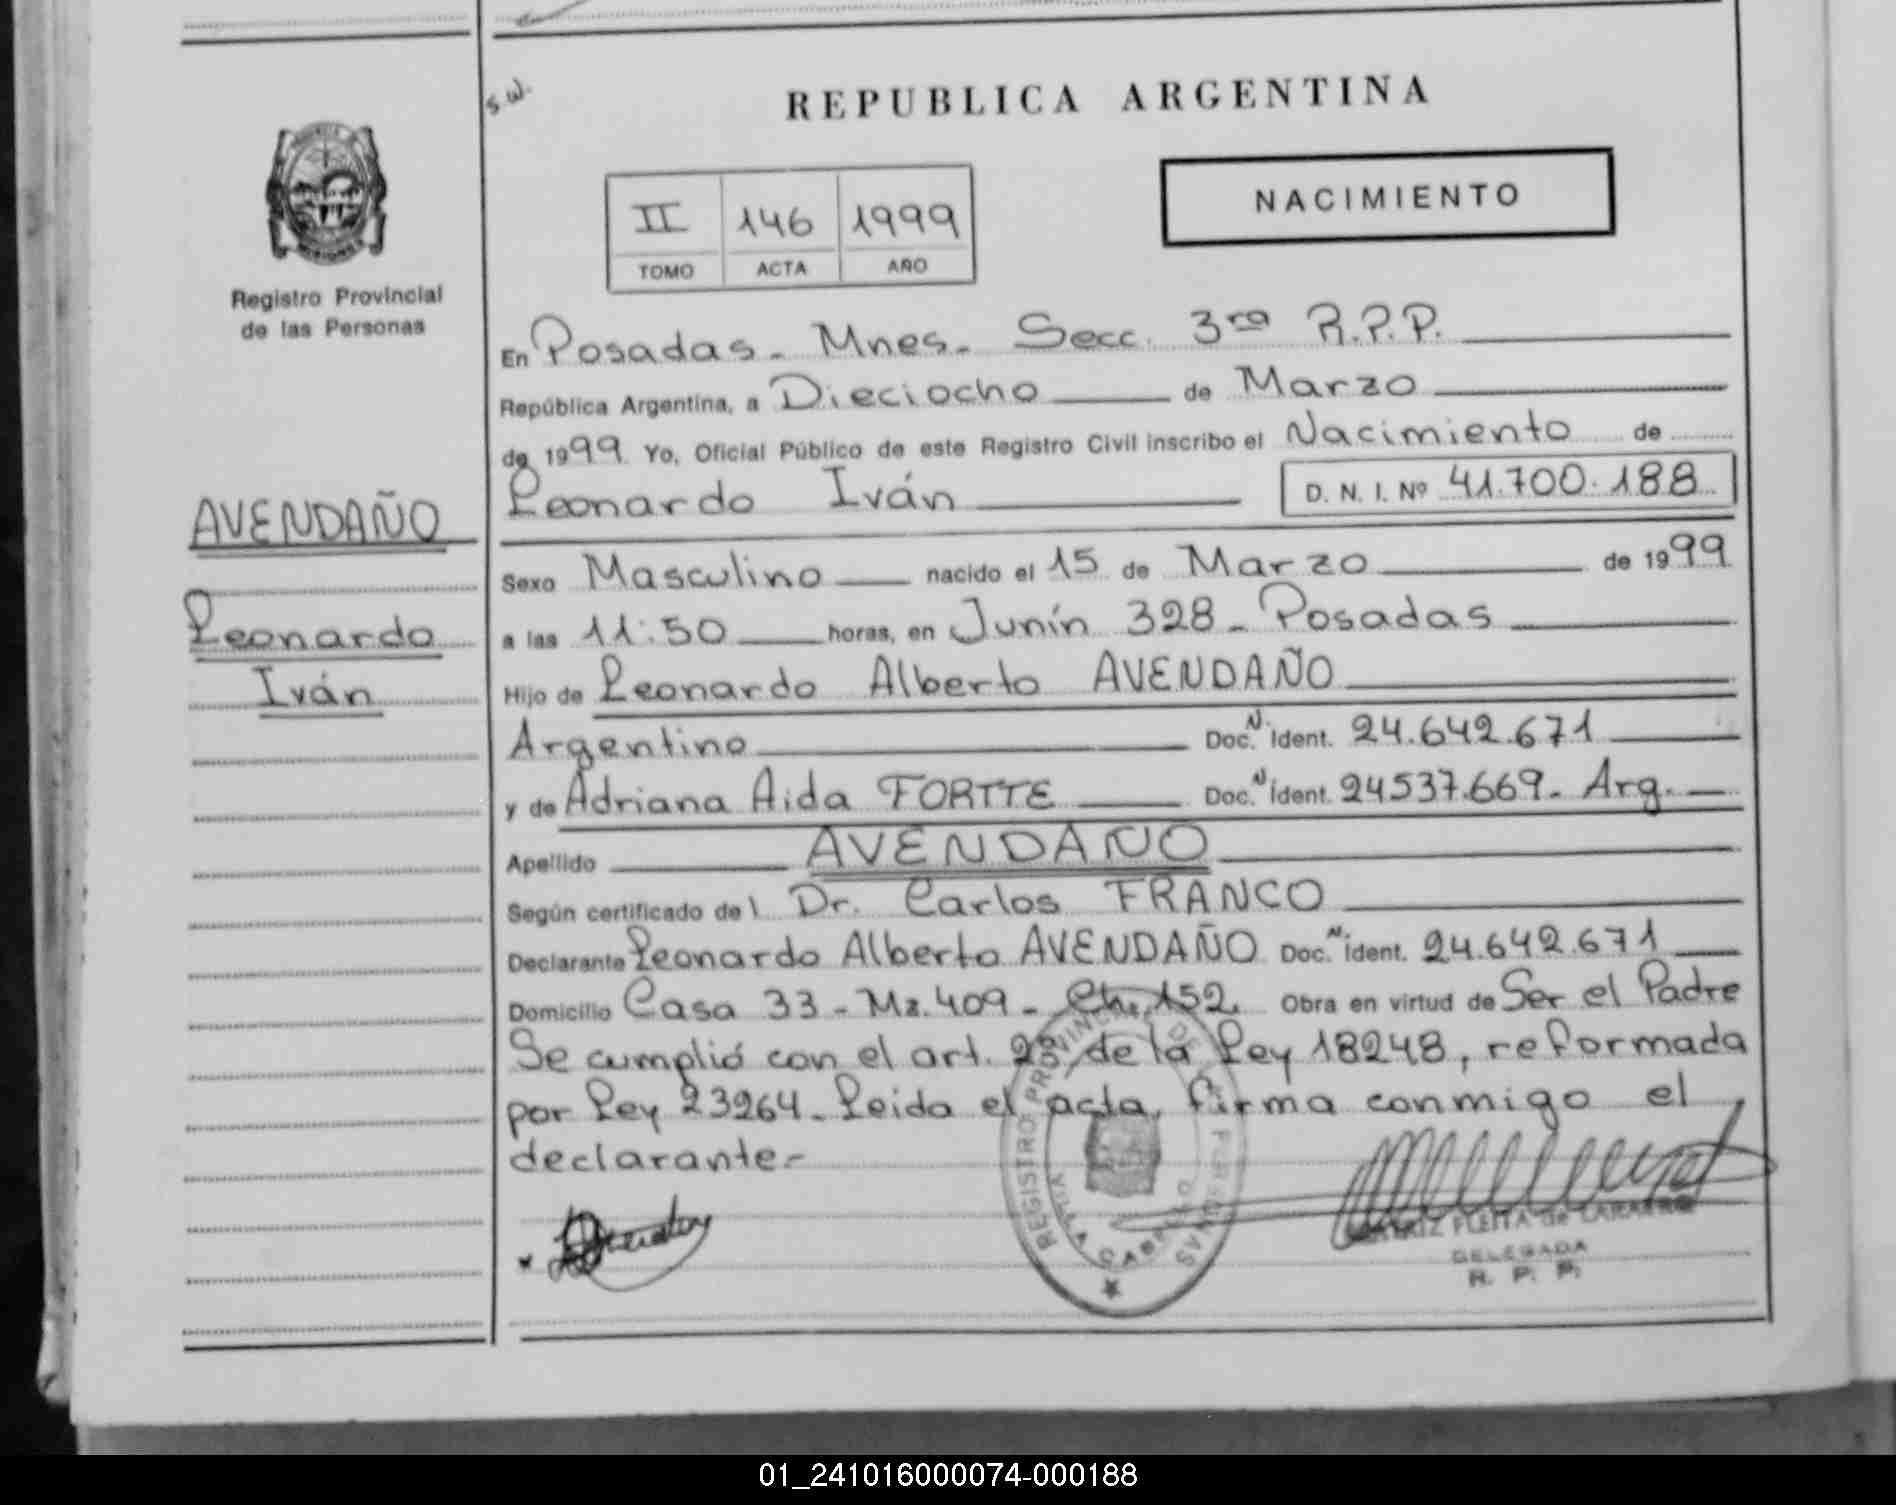 S.W.
REPUBLICA ARGENTINA
NACIMIENTO
II 146 1999
TOMO ACTA AÑO
Registro Provincial
de las Personas
AVENDAÑO
Leonardo
Iván
En Posadas - Mnes - Secc. 3ra R.P.P.
República Argentina, a Dieciocho de Marzo
de 1999 Yo, Oficial Público de este Registro Civil inscribo el Nacimiento de
Leonardo Iván D. N. I. Nº 41.700.188
Sexo Masculino nacido el 15 de Marzo de 1999
a las 11:50 horas, en Junín 328 - Posadas
Hijo de Leonardo Alberto AVENDAÑO
Argentino Doc. N. Ident. 24.642.671
y de Adriana Aida FORTTE Doc. N. Ident. 24537.669 - Arg.
Apellido AVENDAÑO
Según certificado del Dr. Carlos FRANCO
Declarante Leonardo Alberto AVENDAÑO Doc. N. Ident. 24.642.671
Domicilio Casa 33 - Mz. 409 - Ch. 152. Obra en virtud de Ser el Padre
Se cumplió con el art. de la Ley 18248, reformada
por Ley 23264 - Leida el acta, firma conmigo el
declarante -
REGISTRO PROVINCIAL DE LAS PERSONAS
VILLA CABELLO
FLEITA de
DELEGADA
R. P. P.
01_241016000074-000188